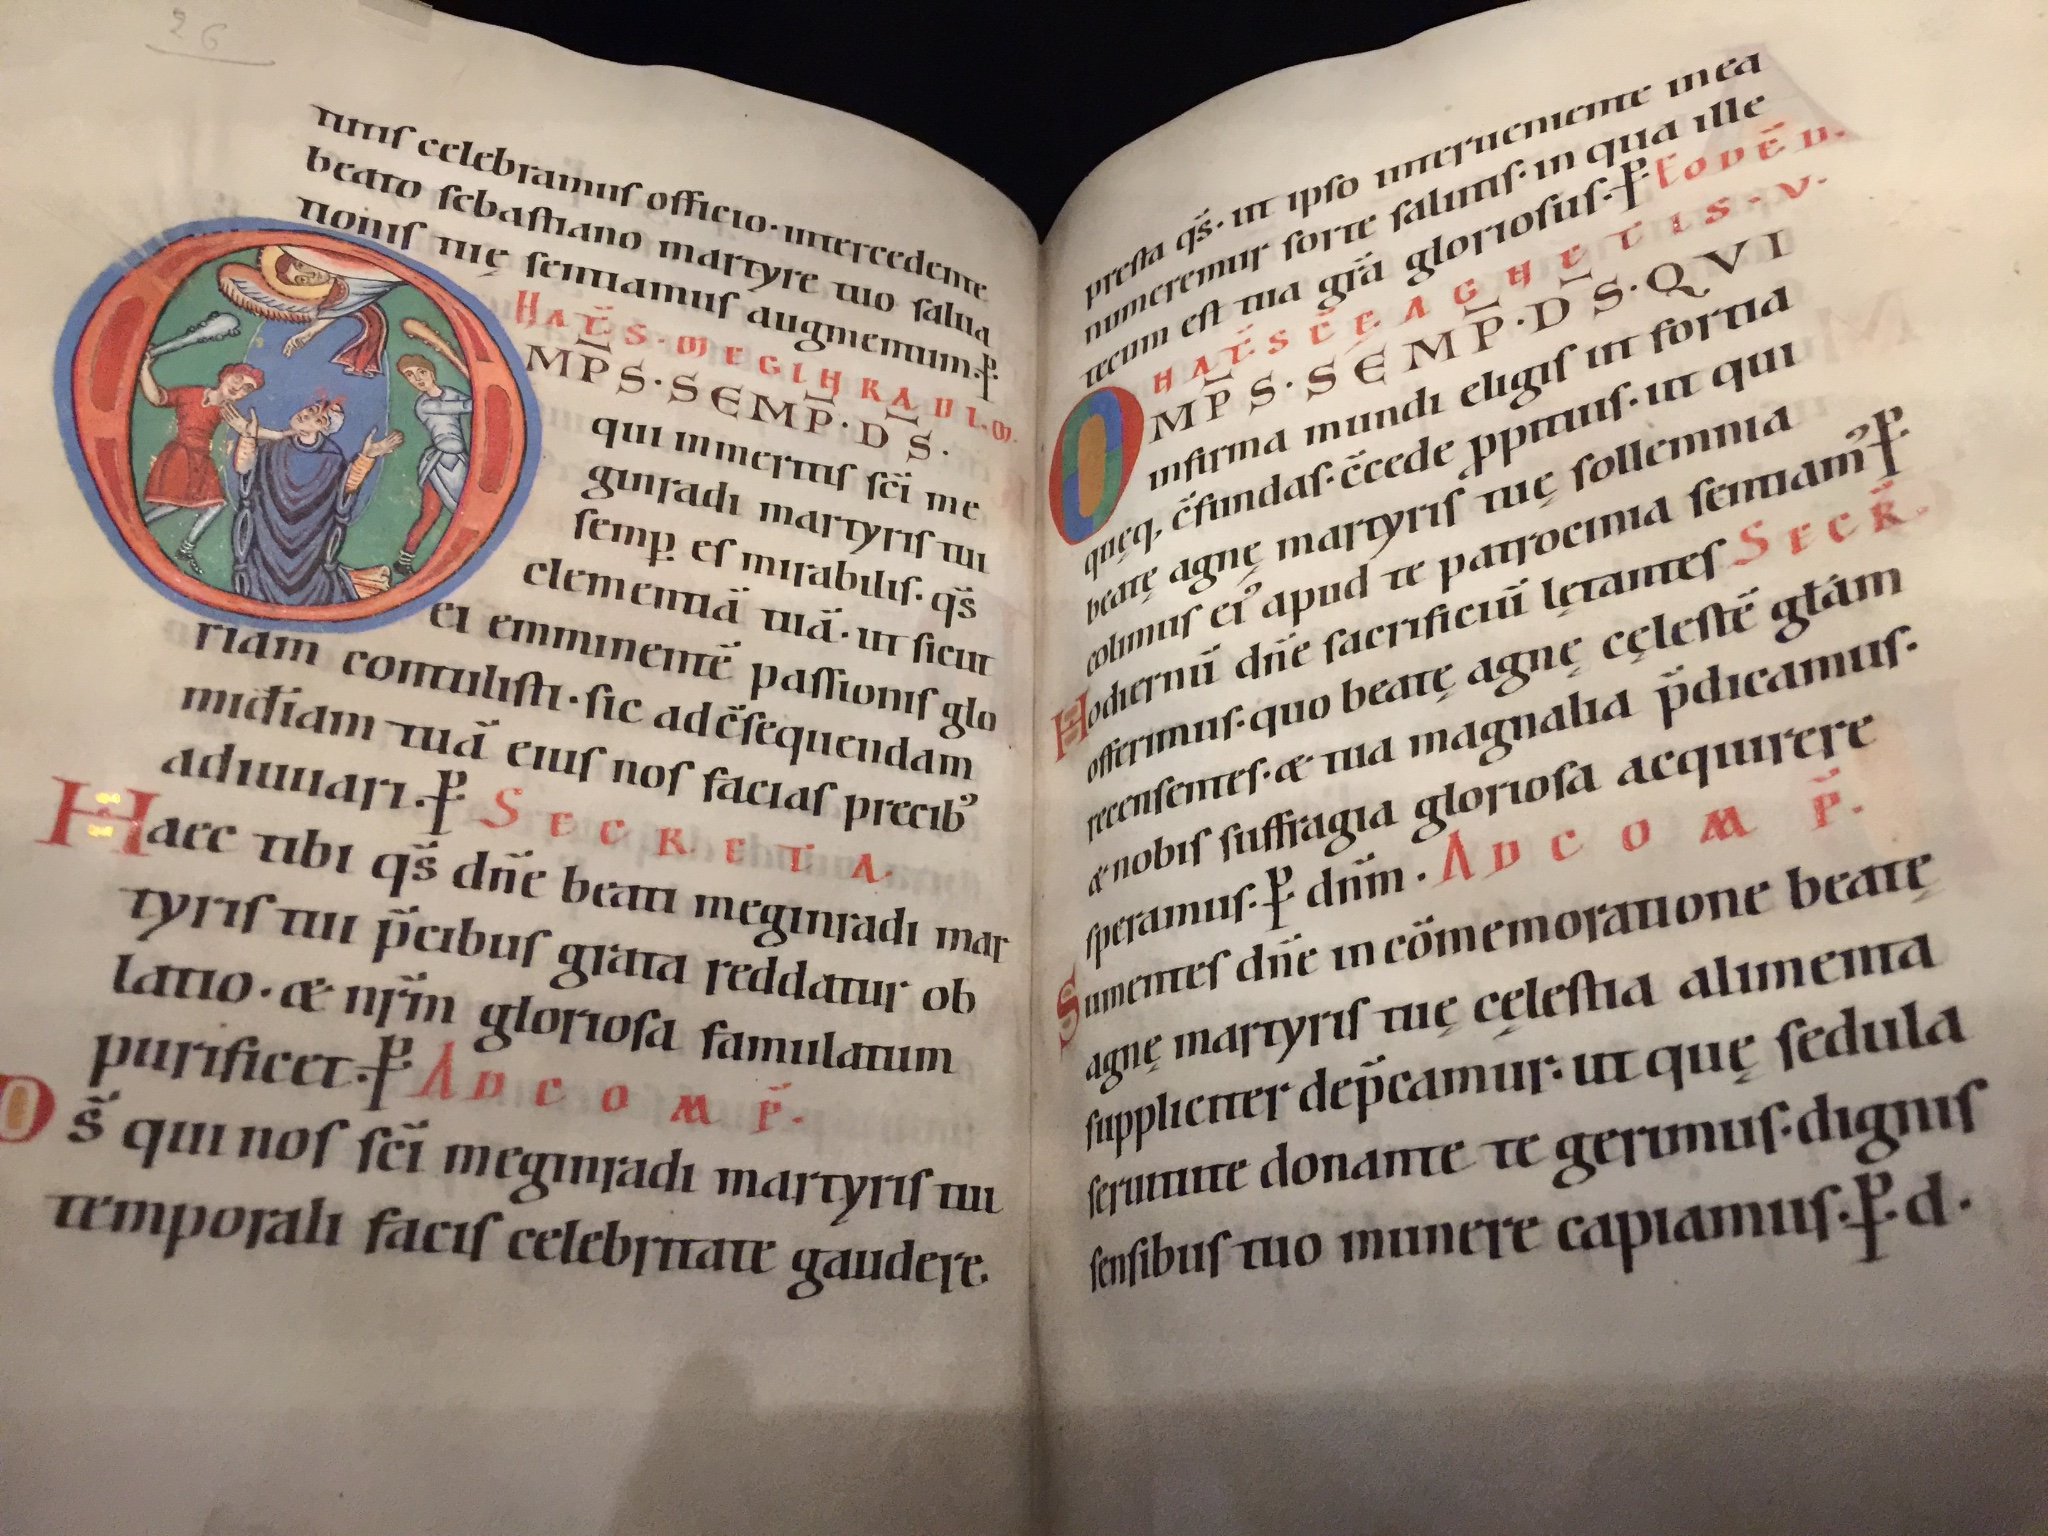 26
tutis celebramus officio · intercedente
beato sebastiano martyre tuo salua
tionis tuę sentiamus augmentum · P̄
HAT̄S · MEGINRADI · M ·
OMPS · SEMP̄ · DS̄ ·
qui inmeritis sc̄i me
ginradi martyris tui
semp̲ es mirabilis · qs̄
clementiā tuā · ut sicut
ei emminentē passionis glo
riam contulisti · sic ad c̄sequendam
mīdiam tuā eius nos facias precib᾿
adiuuari · P̄ SECRETA
Haec tibi qs̄ dn̄e beati meginradi mar
tyris tui p̄cibus grata reddatur ob
latio · & nr̄m gloriosa famulatum
purificet · P̄ AD COM P̄ ·
Ds̄ qui nos sc̄i meginradi martyris tui
temporali facis celebritate gaudere
presta qs̄ · ut ipso interueniente in ea
numeremur sorte salutis · in qua ille
tecum est tua grā gloriosus · P̄ EODĒ D ·
NAT̄ SC̄E AGNETIS · V ·
OMPS · SEMP̄ · DS̄ · QVI
infirma mundi eligis ut fortia
quęq, c̄fundas · c̄cede ppitius · ut qui
beatę agnę martyris tuę sollemnia
colimus ei᾿ apud te patrocinia sentiam᾿ P̄
Hodiernū dn̄e sacrificiū lętantes SECR̄
offerimus · quo beatę agnę cęlestē glām
recensentes · & tua magnalia p̄dicamus ·
& nobis suffragia gloriosa acquirere
speramus · P̄ dn̄m · AD COM P̄ ·
Sumentes dn̄e in cōmemoratione beatę
agnę martyris tuę cęlestia alimenta
suppliciter dep̄camur · ut quę sedula
seruitute donante te gerimus · dignis
sensibus tuo munere capiamus · P̄ · d ·